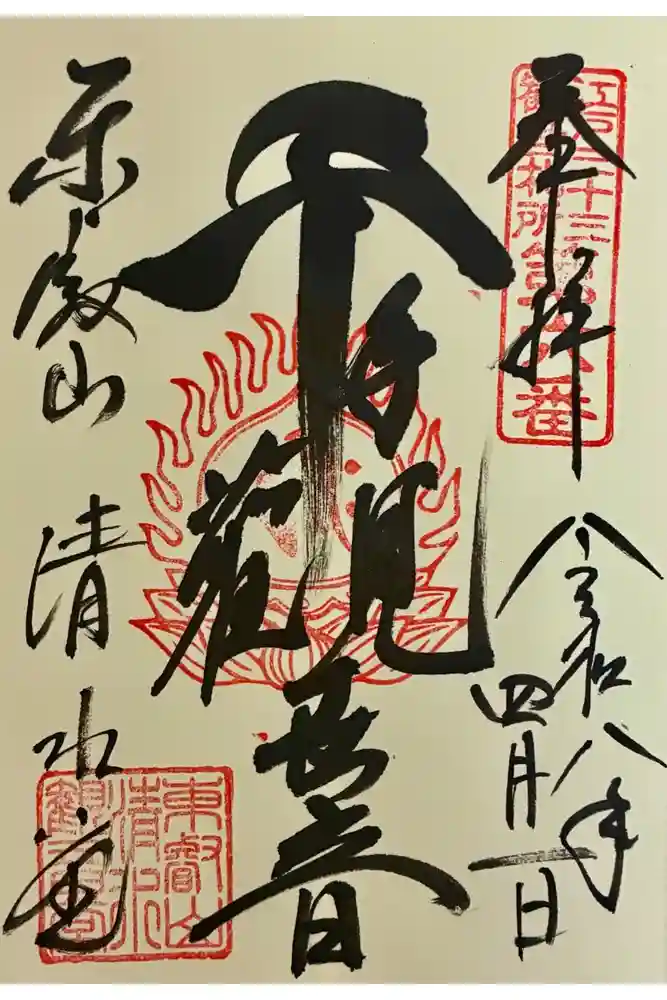 奉拝
江戸三十三観音札所第六番
令和八年
四月一日
千手観世音
東叡山
清水堂
東叡山
清水
観音堂